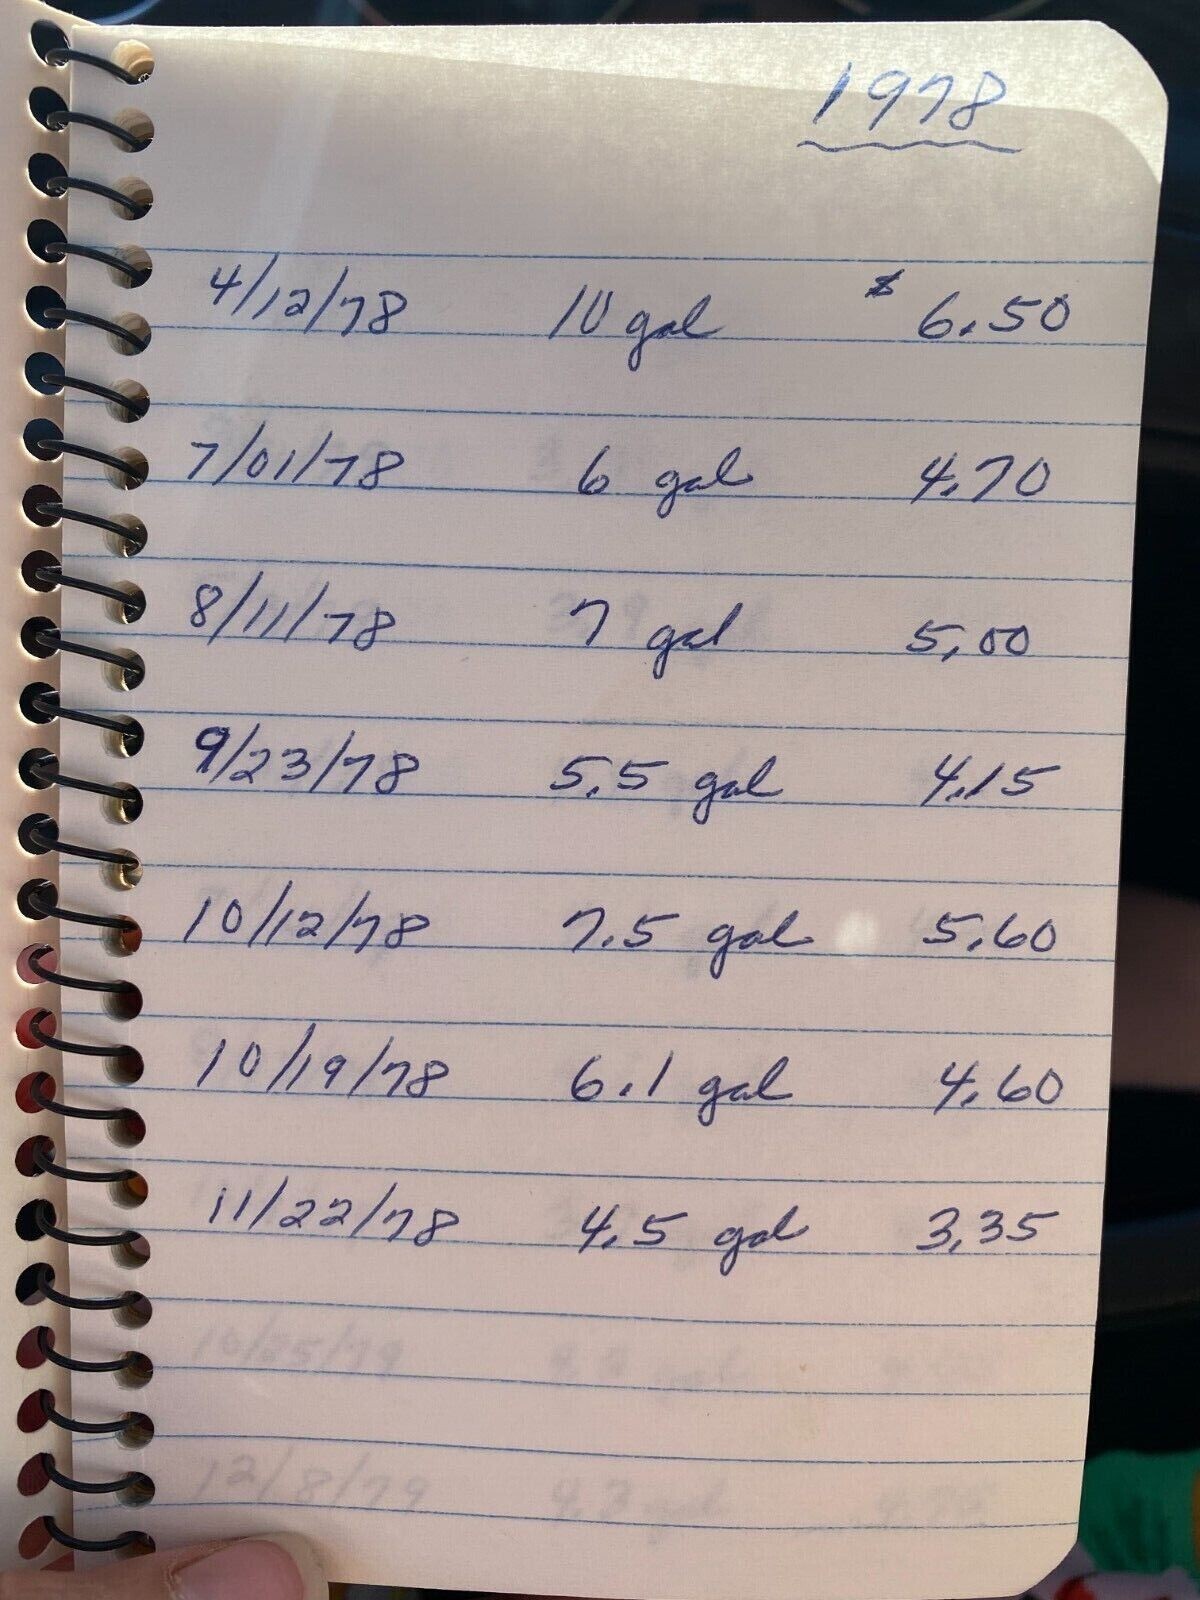 1978
4/12/78 10 gal $ 6.50
7/01/78 6 gal 4.70
8/11/78 7 gal 5.00
9/23/78 5.5 gal 4.15
10/12/78 7.5 gal 5.60
10/19/78 6.1 gal 4.60
11/22/78 4.5 gal 3.35
10/25/79
12/8/79 9.3 gal